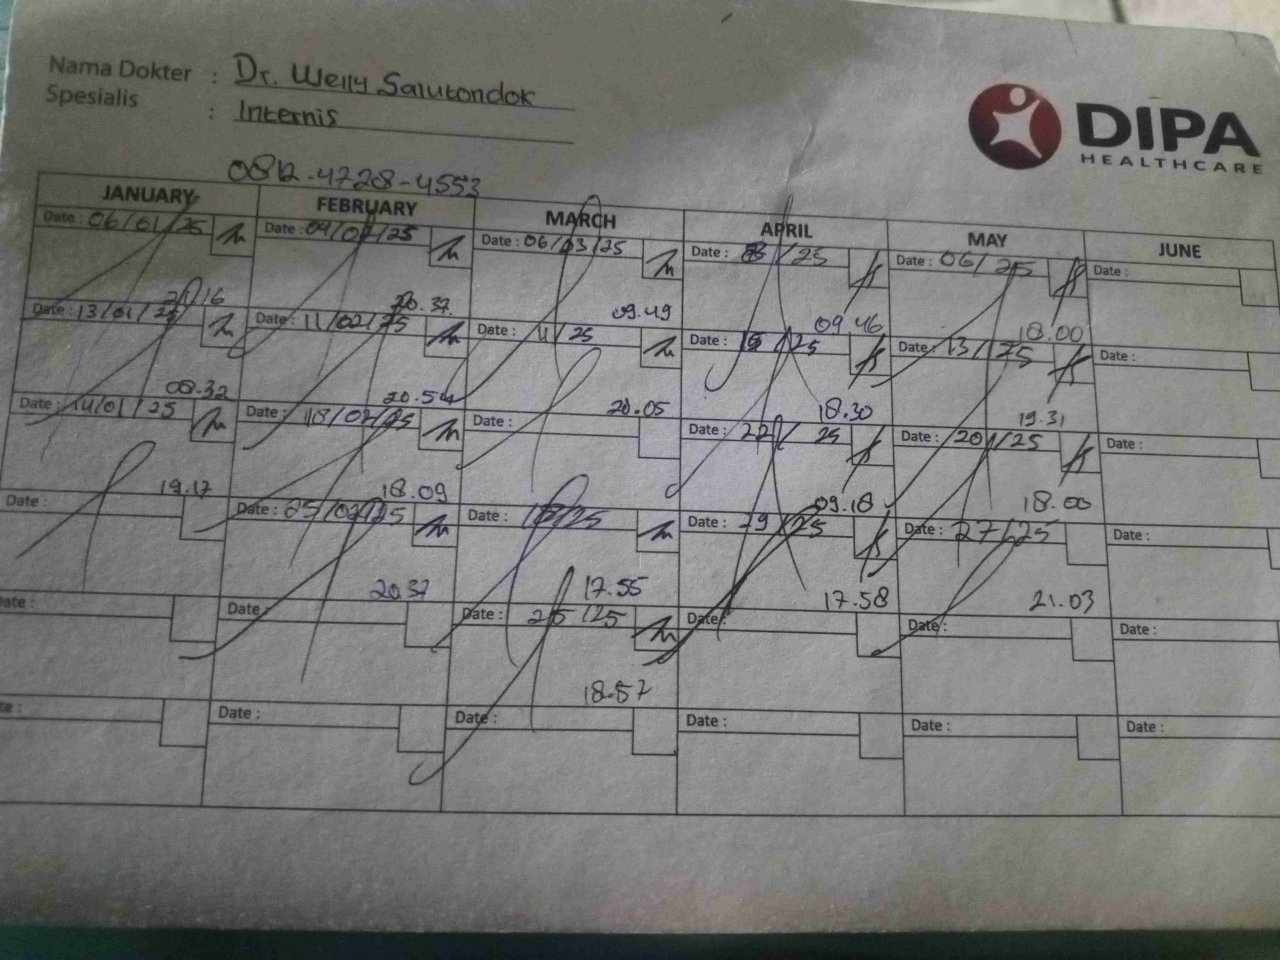 Nama Dokter : Dr. Welly Salutondok
Spesialis : Internis
DIPA
HEALTHCARE
0812-4728-4553
JANUARY FEBRUARY MARCH APRIL MAY JUNE
Date : 06/01/25 Date : 04/02/25 Date : 06/03/25 Date : /25 Date : 06/25 Date :
16 20.37 09.49 09.46 18.00
Date : 13/01/25 Date : 11/02/25 Date : 11/25 Date : /25 Date : 13/25 Date :
08.32 20.54 20.05 18.30 19.31
Date : 14/01/25 Date : 18/02/25 Date : Date : 22/25 Date : 20/25 Date :
19.17 18.09 09.18 18.00
Date : Date : 25/02/25 Date : /25 Date : 29/25 Date : 27/25 Date :
20.37 17.55 17.58 21.03
Date : Date : Date : 25/25 Date : Date : Date :
18.57
Date : Date : Date : Date : Date : Date :